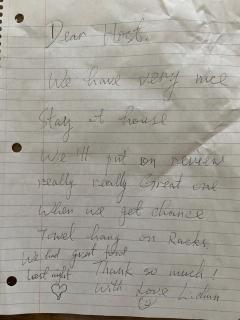 Dear Host.
We have very nice
Stay at house
We'll put on review
really really Great one
When we get chance
Towel hang on Racks
We had great food
last night
Thank so much!
With Love